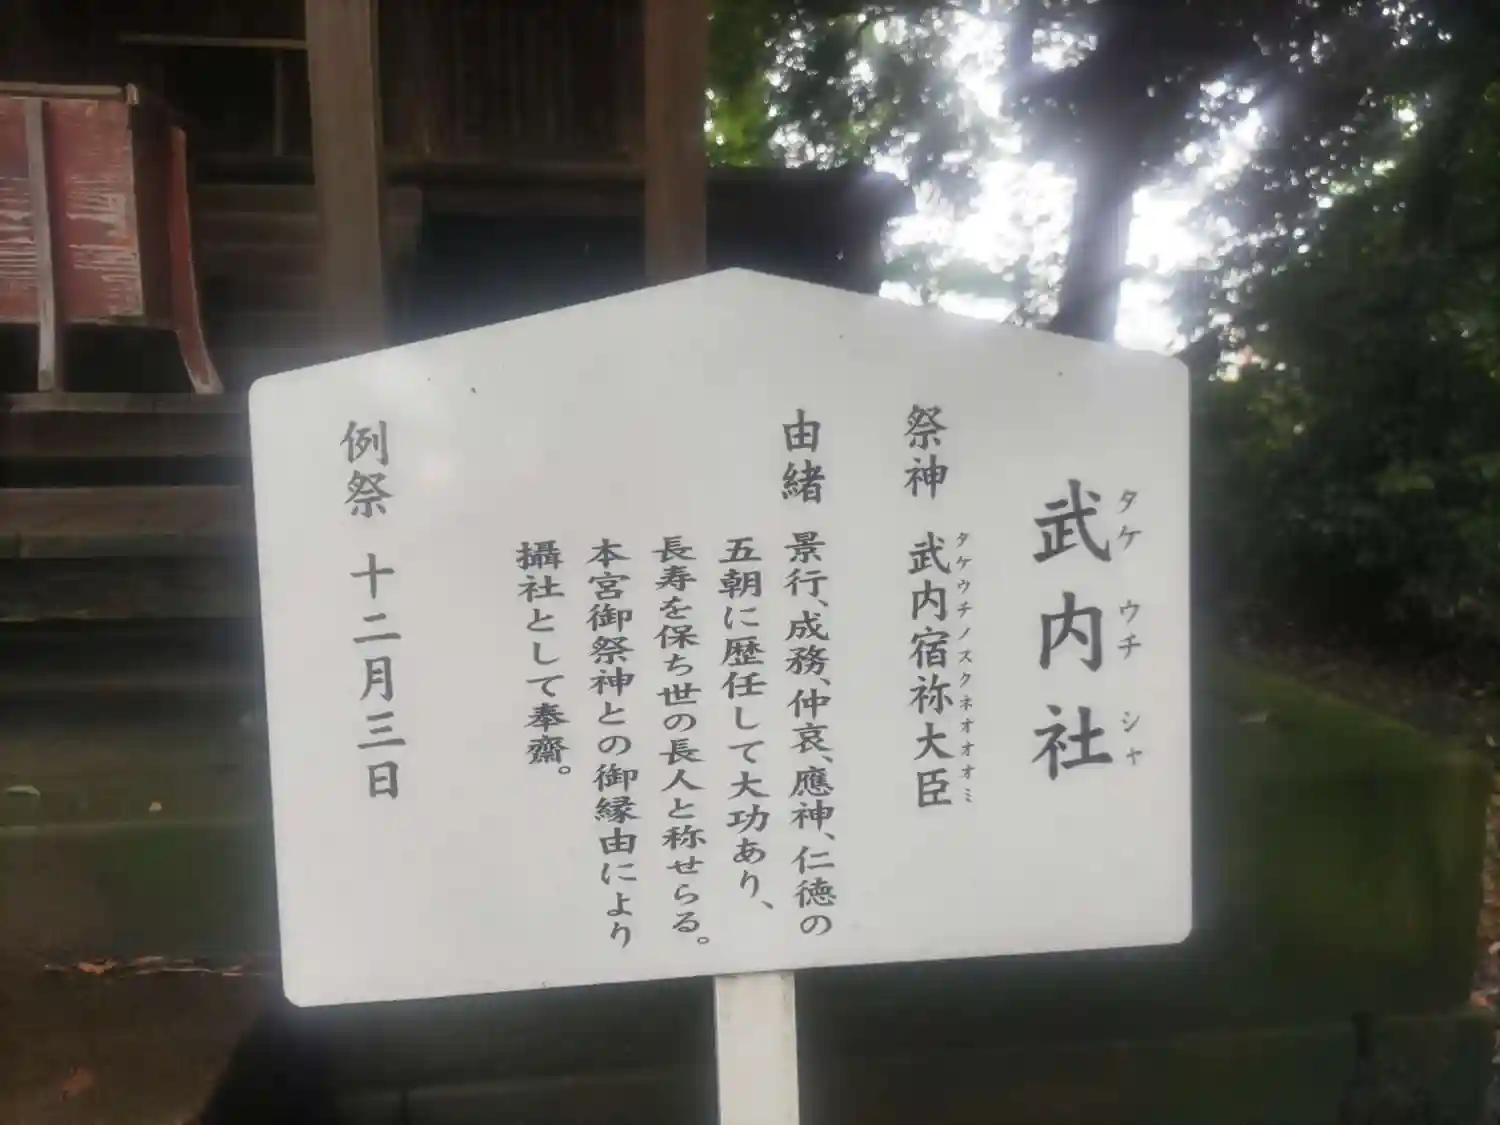 武内社
タケウチシャ
祭神 武内宿祢大臣
タケウチノスクネオオオミ
由緒 景行、成務、仲哀、應神、仁徳の
五朝に歴任して大功あり、
長寿を保ち世の長人と称せらる。
本宮御祭神との御縁由により
攝社として奉齋。
例祭 十二月三日